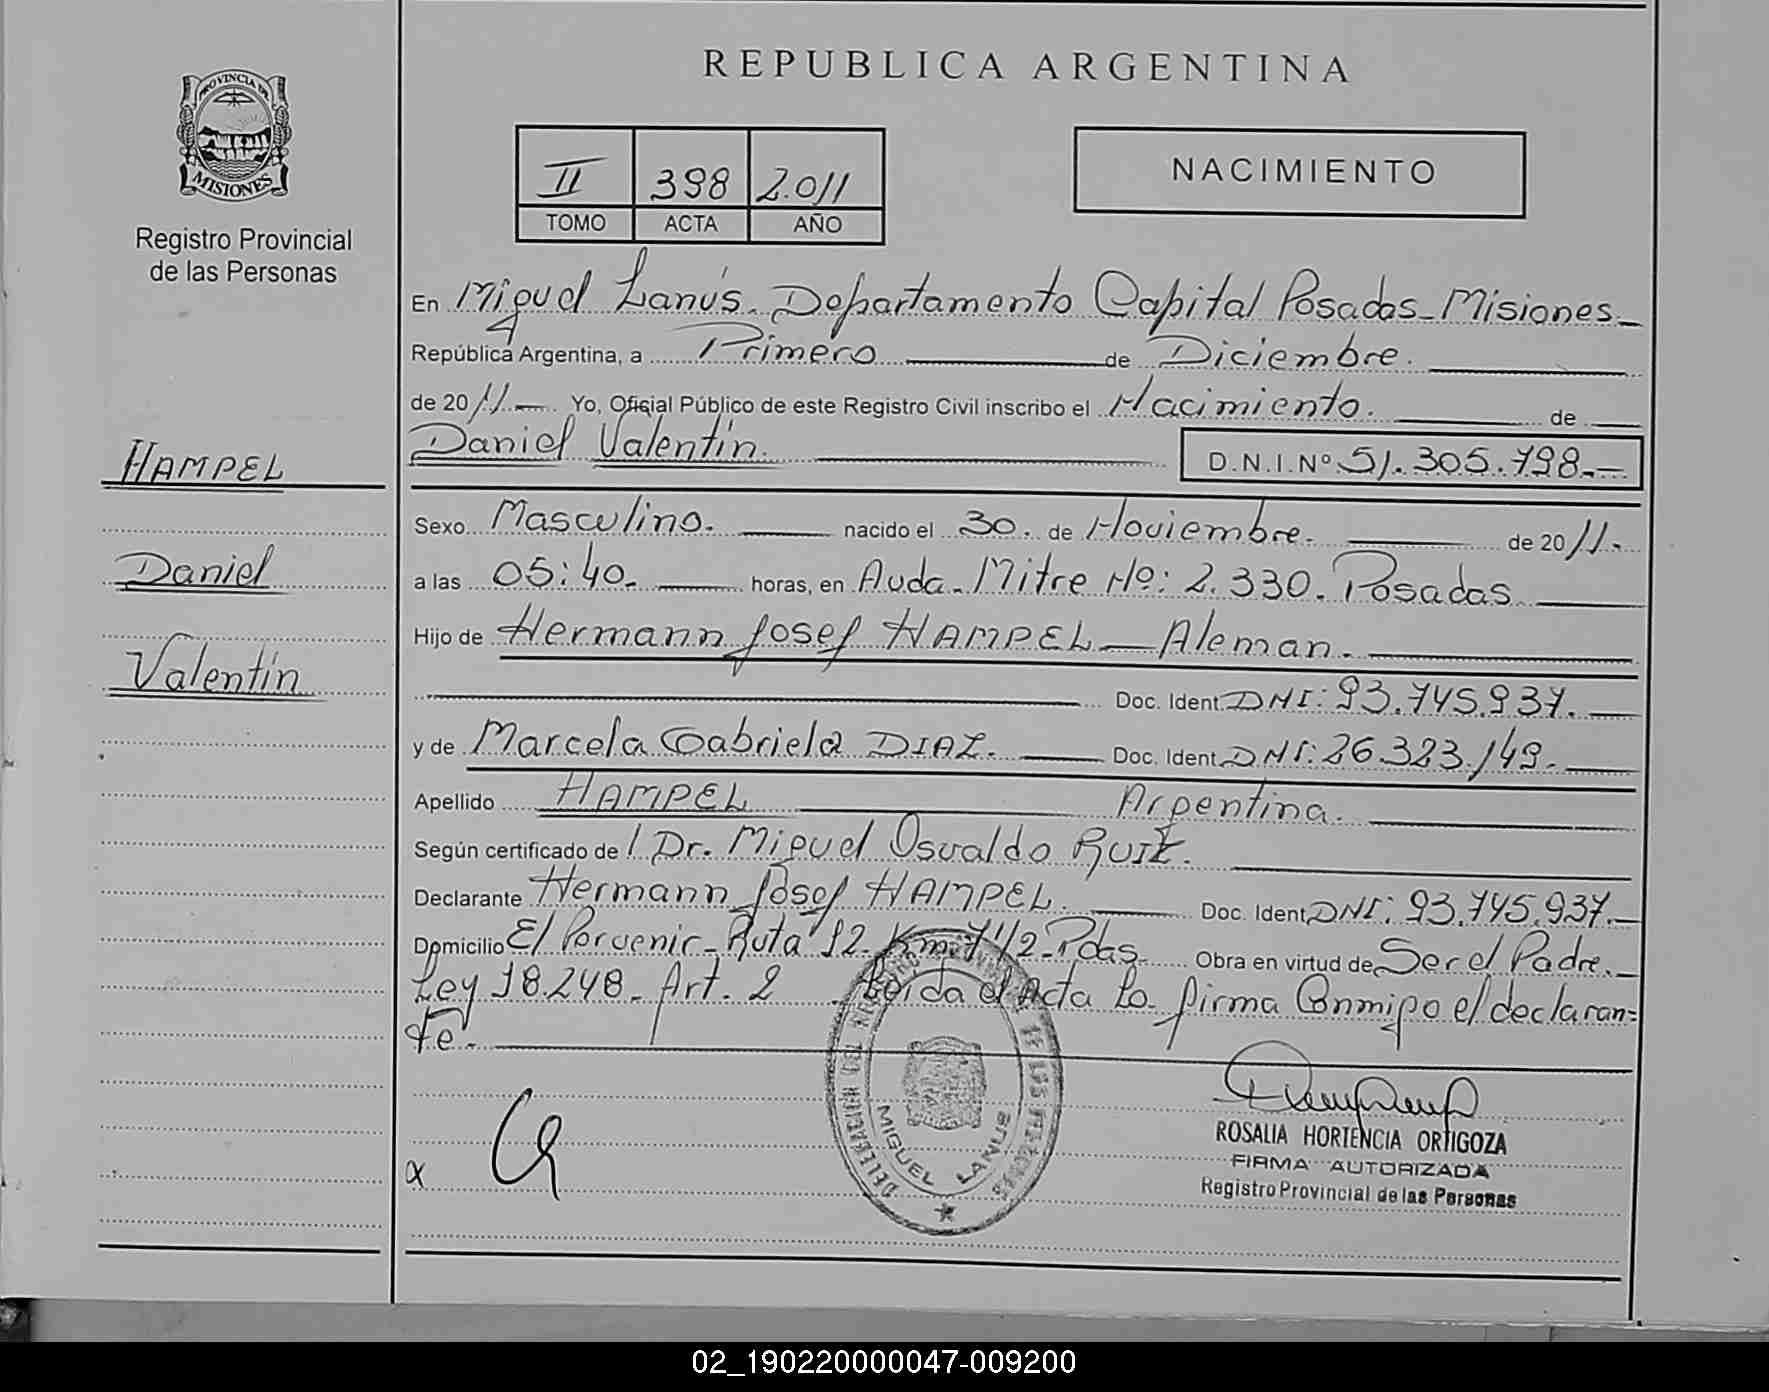 PROVINCIA DE
MISIONES
Registro Provincial
de las Personas
HAMPEL
Daniel
Valentín
REPUBLICA ARGENTINA
II 398 2.011
TOMO ACTA AÑO
NACIMIENTO
En Miguel Lanús. Departamento Capital Posadas - Misiones -
República Argentina, a Primero de Diciembre.
de 2011.- Yo, Oficial Público de este Registro Civil inscribo el Nacimiento. de
Daniel Valentín. D.N.I.Nº 51.305.798.-
Sexo Masculino. nacido el 30. de Noviembre. de 2011.
a las 05:40. horas, en Avda. Mitre Nº: 2.330. Posadas
Hijo de Hermann Josef HAMPEL - Aleman.
Doc. Ident. DNI: 93.745.937.
y de Marcela Gabriela DIAZ. Doc. Ident. DNI: 26.323.149.
Apellido HAMPEL Argentina.
Según certificado de / Dr. Miguel Osvaldo RUIZ.
Declarante Hermann Josef HAMPEL. Doc. Ident. DNI: 93.745.937.
Domicilio El Porvenir - Ruta 12. Km. 7 1/2 - Pdas. Obra en virtud de Ser el Padre.
Ley 18.248. Art. 2 Leída el Acta La firma Conmigo el declaran=
te.
DELEGACION DEL REGISTRO PROVINCIAL DE LAS PERSONAS
MIGUEL LANUS
ROSALIA HORTENCIA ORTIGOZA
FIRMA AUTORIZADA
Registro Provincial de las Personas
02_190220000047-009200